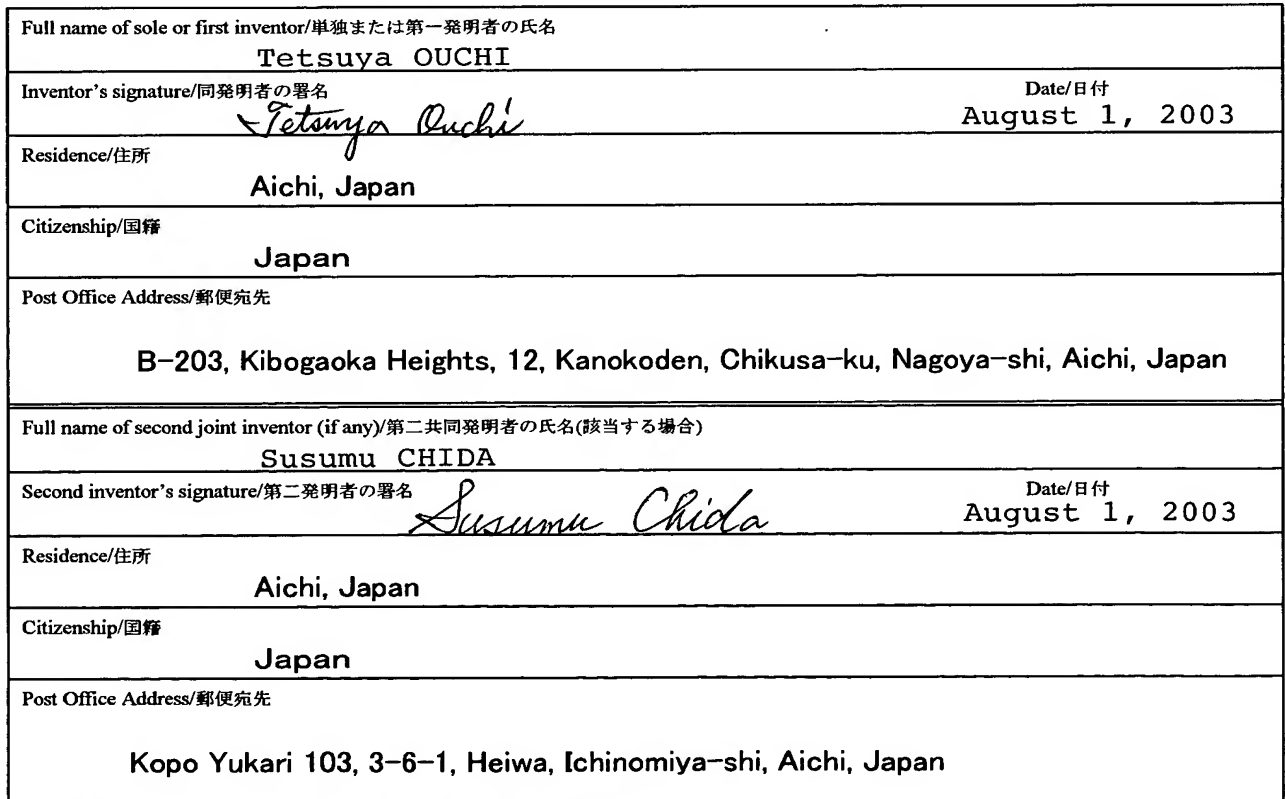 Full name of sole or first inventor/単独または第一発明者の氏名
Tetsuya OUCHI
Inventor's signature/同発明者の署名 Date/日付
Tetsuya Ouchi August 1, 2003
Residence/住所
Aichi, Japan
Citizenship/国籍
Japan
Post Office Address/郵便宛先
B-203, Kibogaoka Heights, 12, Kanokoden, Chikusa-ku, Nagoya-shi, Aichi, Japan
Full name of second joint inventor (if any)/第二共同発明者の氏名(該当する場合)
Susumu CHIDA
Second inventor's signature/第二発明者の署名 Date/日付
Susumu Chida August 1, 2003
Residence/住所
Aichi, Japan
Citizenship/国籍
Japan
Post Office Address/郵便宛先
Kopo Yukari 103, 3-6-1, Heiwa, Ichinomiya-shi, Aichi, Japan